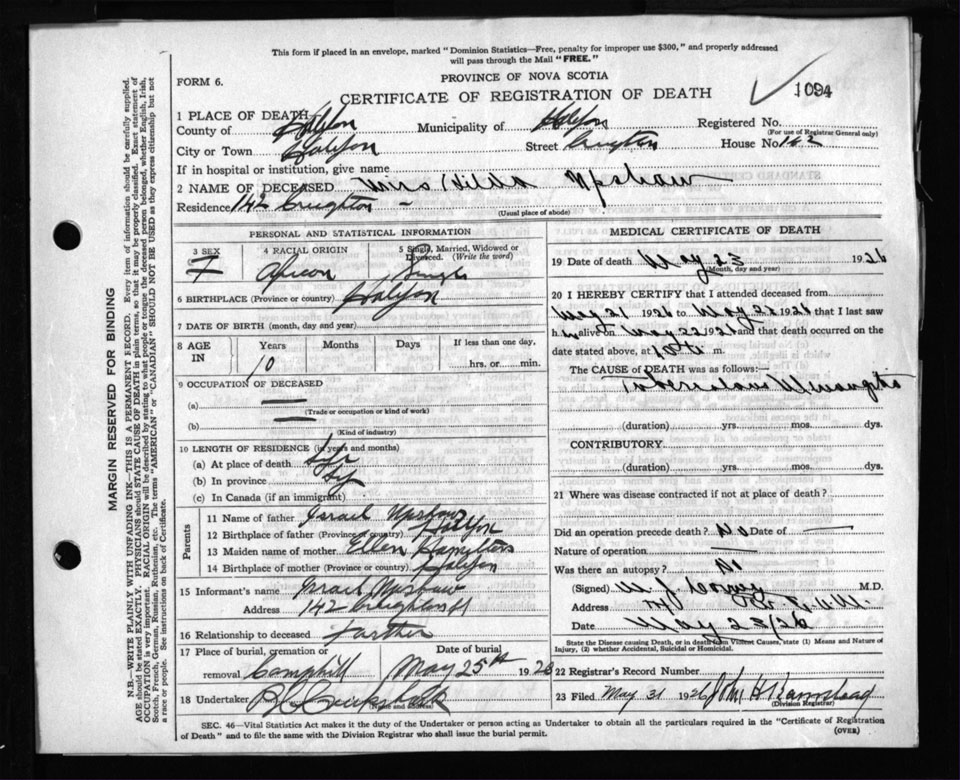 This form if placed in an envelope, marked "Dominion Statistics—Free, penalty for improper use $300," and properly addressed
will pass through the Mail "FREE."
FORM 6.
PROVINCE OF NOVA SCOTIA
CERTIFICATE OF REGISTRATION OF DEATH
1094
1 PLACE OF DEATH
County of Halifax Municipality of Halifax Registered No.
(For use of Registrar General only)
City or Town Halifax Street Creighton House No. 142
If in hospital or institution, give name
2 NAME OF DECEASED Miss Hilda Upshaw
Residence 142 Creighton
(Usual place of abode)
PERSONAL AND STATISTICAL INFORMATION
3 SEX 4 RACIAL ORIGIN 5 Single, Married, Widowed or Divorced. (Write the word)
F African Single
6 BIRTHPLACE (Province or country) Halifax
7 DATE OF BIRTH (month, day and year)
8 AGE IN Years Months Days If less than one day,
10 hrs. or min.
9 OCCUPATION OF DECEASED
(a) —
(Trade or occupation or kind of work)
(b) —
(Kind of industry)
10 LENGTH OF RESIDENCE (in years and months)
(a) At place of death Life
(b) In province
(c) In Canada (if an immigrant)
Parents
11 Name of father Israel Upshaw
12 Birthplace of father (Province or country) Halifax
13 Maiden name of mother Ellen Hamilton
14 Birthplace of mother (Province or country) Halifax
15 Informant's name Israel Upshaw
Address 142 Creighton St
16 Relationship to deceased Farther
17 Place of burial, cremation or removal Date of burial
Camphill May 25th 1926
18 Undertaker
(Name and address)
MEDICAL CERTIFICATE OF DEATH
19 Date of death May 23 1926
(Month, day and year)
20 I HEREBY CERTIFY that I attended deceased from
May 21 1926 to May 22 1926 that I last saw
h alive on May 22 1926 and that death occurred on
date stated above, at 10 m.
The CAUSE of DEATH was as follows:—
Tuberculous Meningitis
(duration) yrs. mos. dys.
CONTRIBUTORY
(duration) yrs. mos. dys.
21 Where was disease contracted if not at place of death?
Did an operation precede death? No Date of —
Nature of operation —
Was there an autopsy? No
(Signed) M.D.
Address
Date May 23/26
State the Disease causing Death, or in death from Violent Causes, state (1) Means and Nature of
Injury, (2) whether Accidental, Suicidal or Homicidal.
22 Registrar's Record Number
23 Filed May 31 1926 John H
(Division Registrar)
SEC. 46—Vital Statistics Act makes it the duty of the Undertaker or person acting as Undertaker to obtain all the particulars required in the "Certificate of Registration
of Death" and to file the same with the Division Registrar who shall issue the burial permit.
(OVER)
MARGIN RESERVED FOR BINDING
N.B.—WRITE PLAINLY WITH UNFADING INK—THIS IS A PERMANENT RECORD. Every item of information should be carefully supplied.
AGE should be stated EXACTLY. PHYSICIANS should STATE CAUSE OF DEATH in plain terms, so that it may be properly classified. Exact statement of
OCCUPATION is very important. RACIAL ORIGIN will be described by stating to what people or tongue the deceased person belonged, whether English, Irish,
Scotch, French, German, Russian, Ruthenian, etc. The terms "AMERICAN" or "CANADIAN" SHOULD NOT BE USED as they express citizenship but not
a race or people. See instructions on back of Certificate.